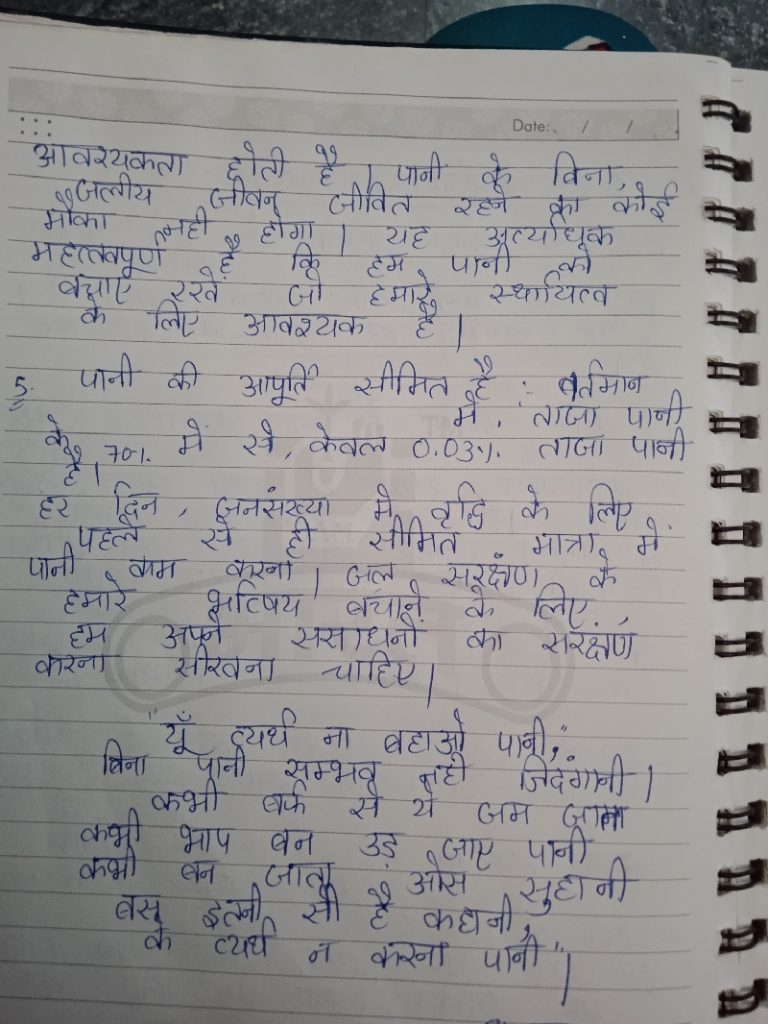 Date: / /
आवश्यकता होती है। पानी के बिना,
जलीय जीवन जीवित रहने का कोई
मौका नही होगा। यह अत्याधिक
महत्तवपूर्ण है कि हम पानी को
बचाए रखे जो हमारे स्थायित्व
के लिए आवश्यक है।
5. पानी की आपूर्ति सीमित है :- वर्तमान
में, ताजा पानी
के 70% में से, केवल 0.03% ताजा पानी
है।
हर दिन, जनसंख्या मे वृद्धि के लिए
पहले से ही सीमित मात्रा में
पानी कम करना। जल सरंक्षण के
हमारे भविषय बचाने के लिए,
हम अपने संसाधनों का सरंक्षण
करना सीखना चाहिए।
"यूँ व्यर्थ ना बहाओ पानी,"
बिना पानी सम्भव नही जिदंगानी।
कभी बर्फ से ये जम जाता
कभी भाप बन उड़ जाए पानी
कभी बन जाता ओस सुहानी
बस इतनी सी है कहानी,
के व्यर्थ न करना पानी"।